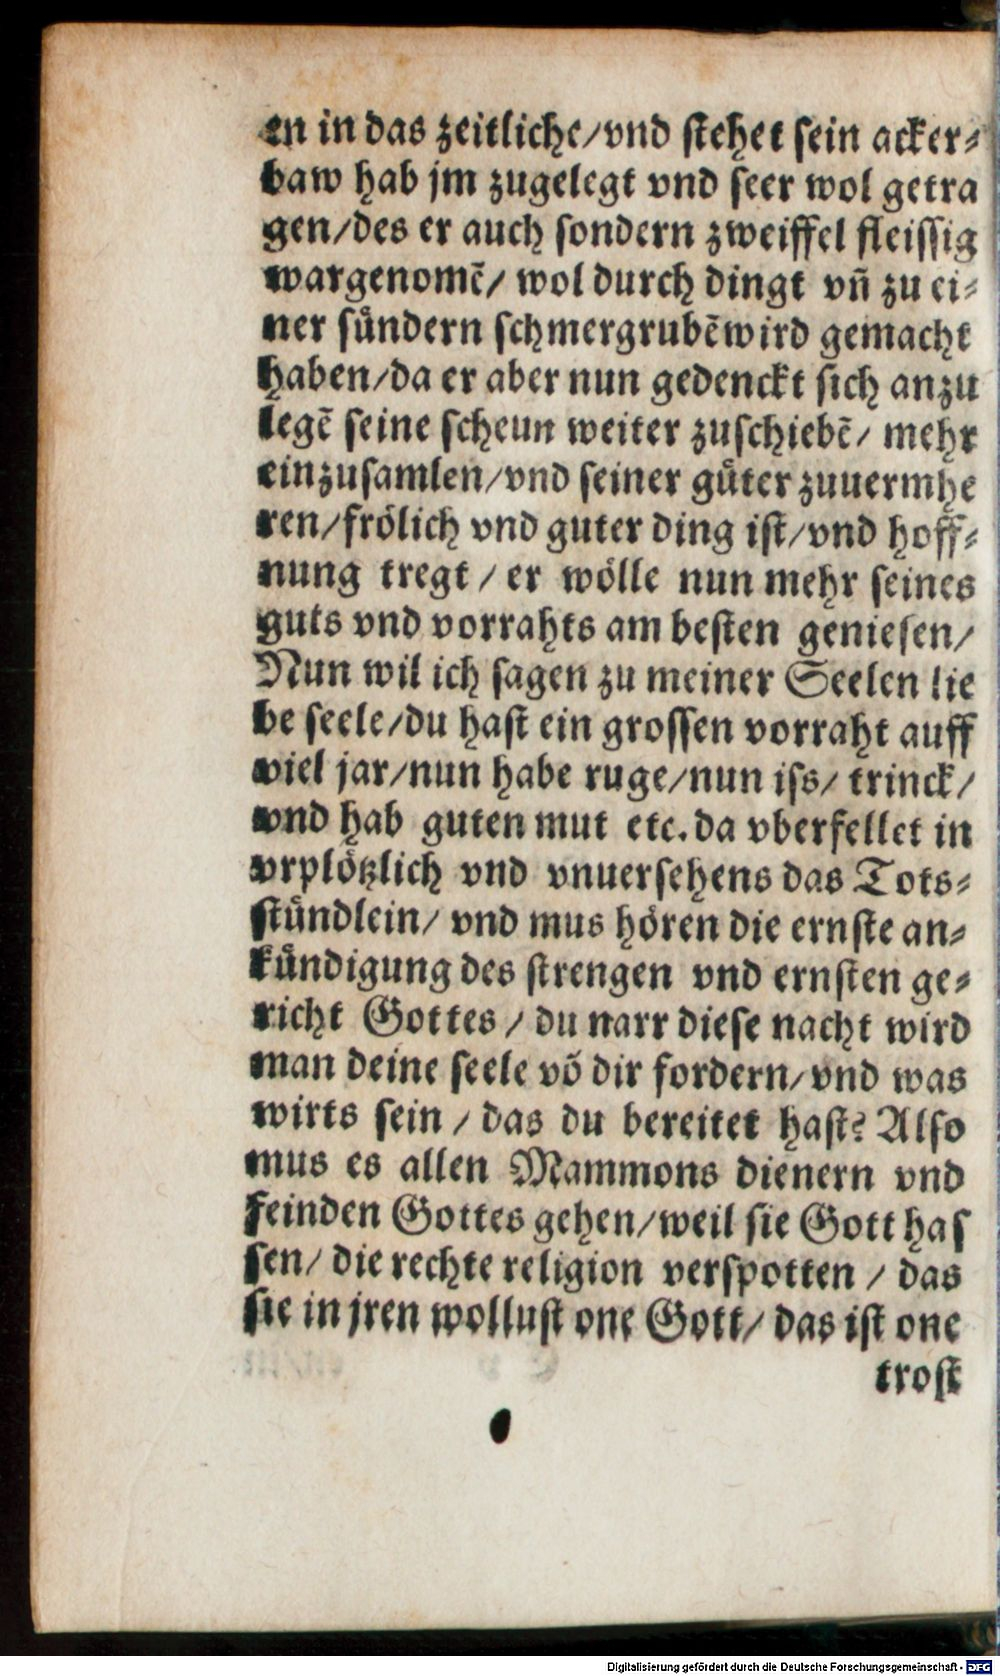 en in das zeitliche/vnd stehet sein acker⸗
baw hab jm zugelegt vnd seer wol getra
gen/des er auch sondern zweiffel fleissig
wargenomē/ wol durch dingt vñ zu ei⸗
ner sündern schmergrubē wird gemacht
haben/da er aber nun gedenckt sich anzu
legē seine scheun weiter zuschiebē/ mehr
einzusamlen/vnd seiner güter zuuermhe
ren/frölich vnd guter ding ist/vnd hoff⸗
nung tregt / er wölle nun mehr seines
guts vnd vorrahts am besten geniesen/
Nun wil ich sagen zu meiner Seelen lie
be seele/du hast ein grossen vorraht auff
viel jar/nun habe ruge/nun iss/ trinck/
vnd hab guten mut etc. da vberfellet in
vrplötzlich vnd vnuersehens das Tots⸗
stündlein/ vnd mus hören die ernste an⸗
kündigung des strengen vnd ernsten ge⸗
richt Gottes / du narr diese nacht wird
man deine seele vō dir fordern/vnd was
wirts sein / das du bereitet hast? Also
mus es allen Mammons dienern vnd
Feinden Gottes gehen/weil sie Gott has
sen/ die rechte religion verspotten / das
sie in jren wollust one Gott/ das ist one
trost
Digitalisierung gefördert durch die Deutsche Forschungsgemeinschaft - DFG